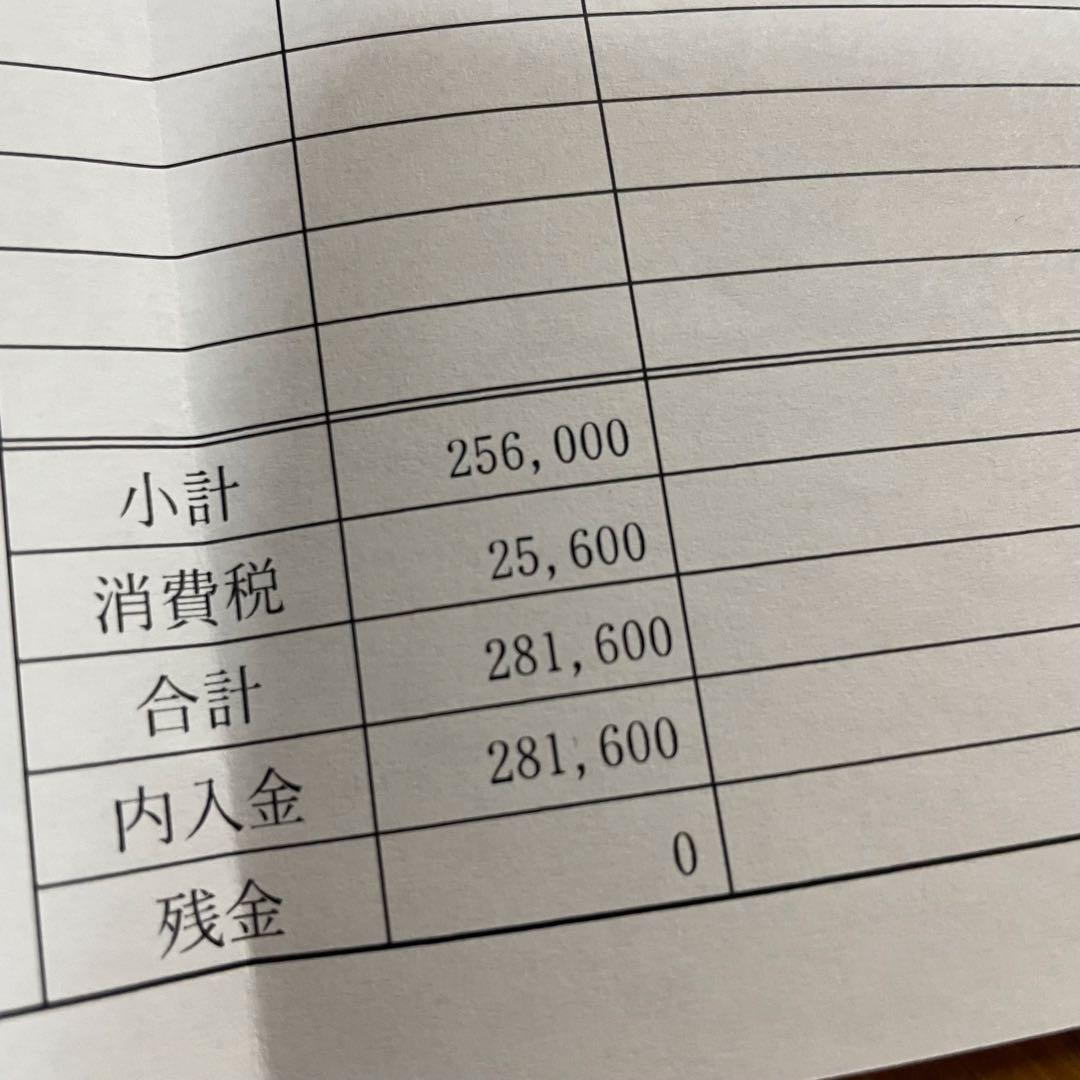 小計 256,000
消費税 25,600
合計 281,600
内入金 281,600
残金 0